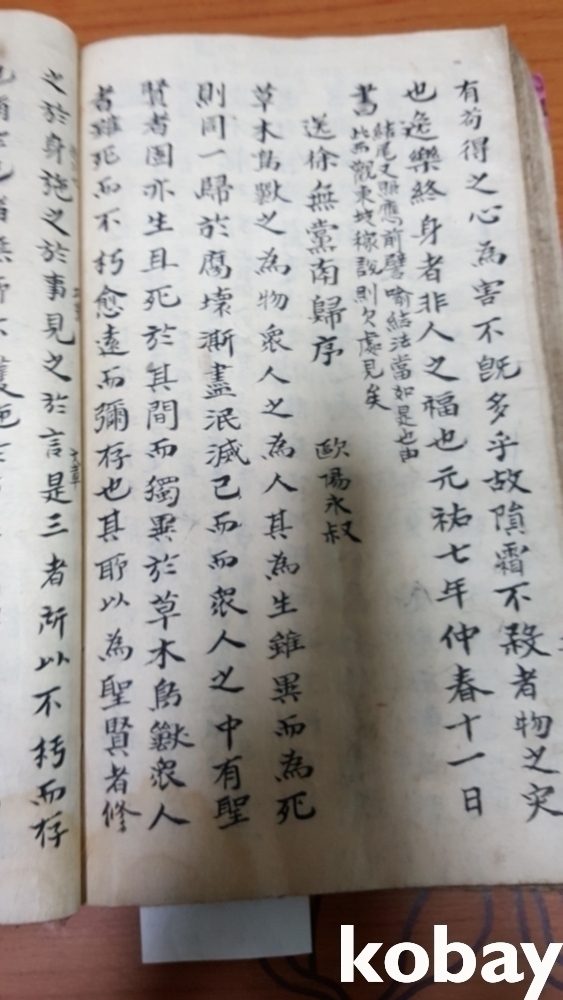 有苟得之心為害不旣多乎故隕霜不殺者物之灾
也逸樂終身者非人之福也元祐七年仲春十一日
書
結尾又照應前譬喻結法當如是也由
此而觀東坡稼說則欠處見矣
送徐無黨南歸序 歐陽永叔
草木鳥獸之為物衆人之為人其為生雖異而為死
則同一歸於腐壞澌盡泯滅已而而衆人之中有聖
賢者固亦生且死於其間而獨異於草木鳥獸衆人
者雖死而不朽愈遠而彌存也其所以為聖賢者修
之於身施之於事見之於言是三者所以不朽而存
kobay